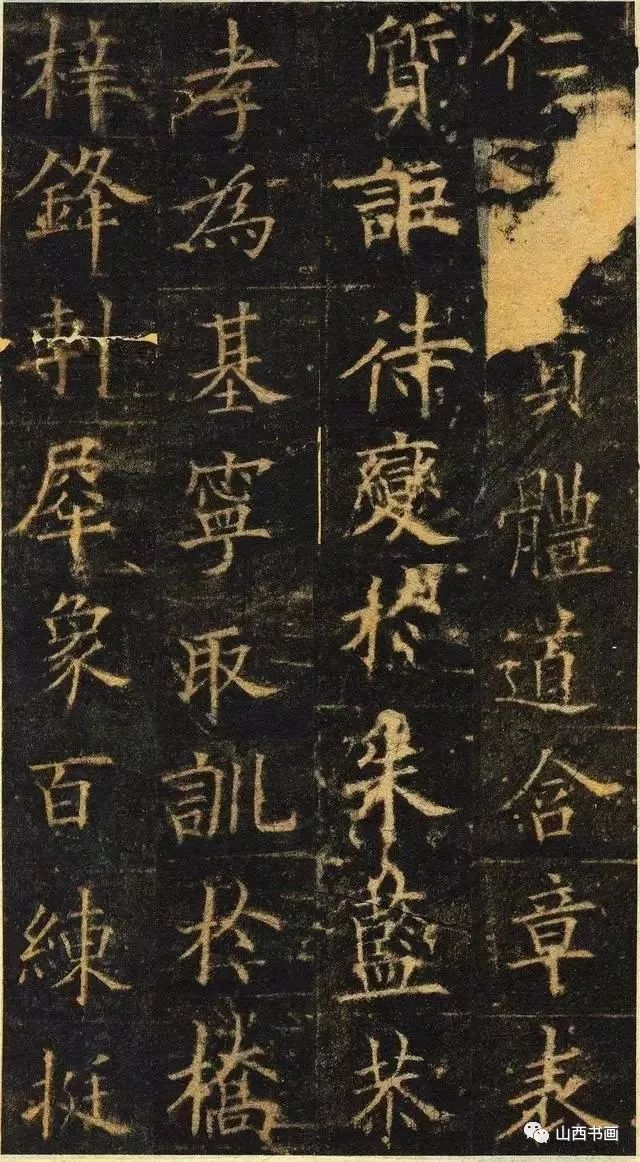 仁 具體道含章表
質詎待變於朱藍恭
孝為基寧取訓於橋
梓鋒剸犀象百練挺
山西书画